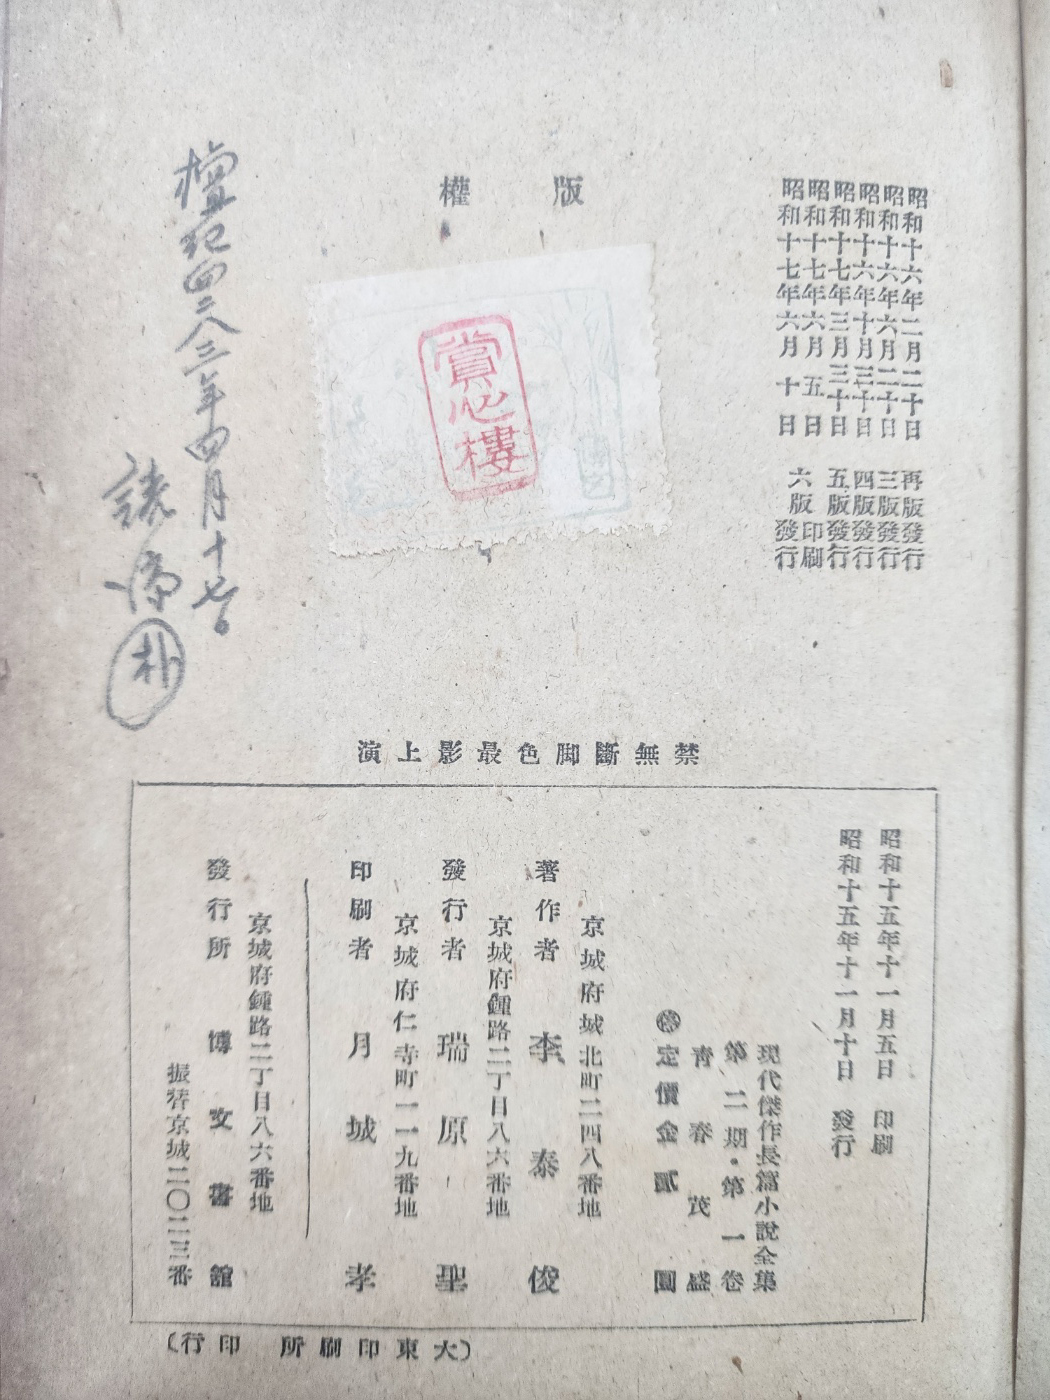 版權
賞心樓
昭和十六年二月二十日 再版發行
昭和十六年六月二十日 三版發行
昭和十六年十月三十日 四版發行
昭和十七年三月三十日 五版發行
昭和十七年六月五日 六版印刷
昭和十七年六月十日 六版發行
檀紀四二八三年四月十七日
讀
朴
禁無斷脚色最影上演
昭和十五年十一月五日 印刷
昭和十五年十一月十日 發行
現代傑作長篇小說全集
第二期・第一卷
靑春茂盛
定價金貳圓
京城府城北町二四八番地
著作者 李泰俊
京城府鍾路二丁目八六番地
發行者 瑞原聖
京城府仁寺町一一九番地
印刷者 月城孝
京城府鍾路二丁目八六番地
發行所 博文書館
振替京城二〇二三番
(大東印刷所印行)